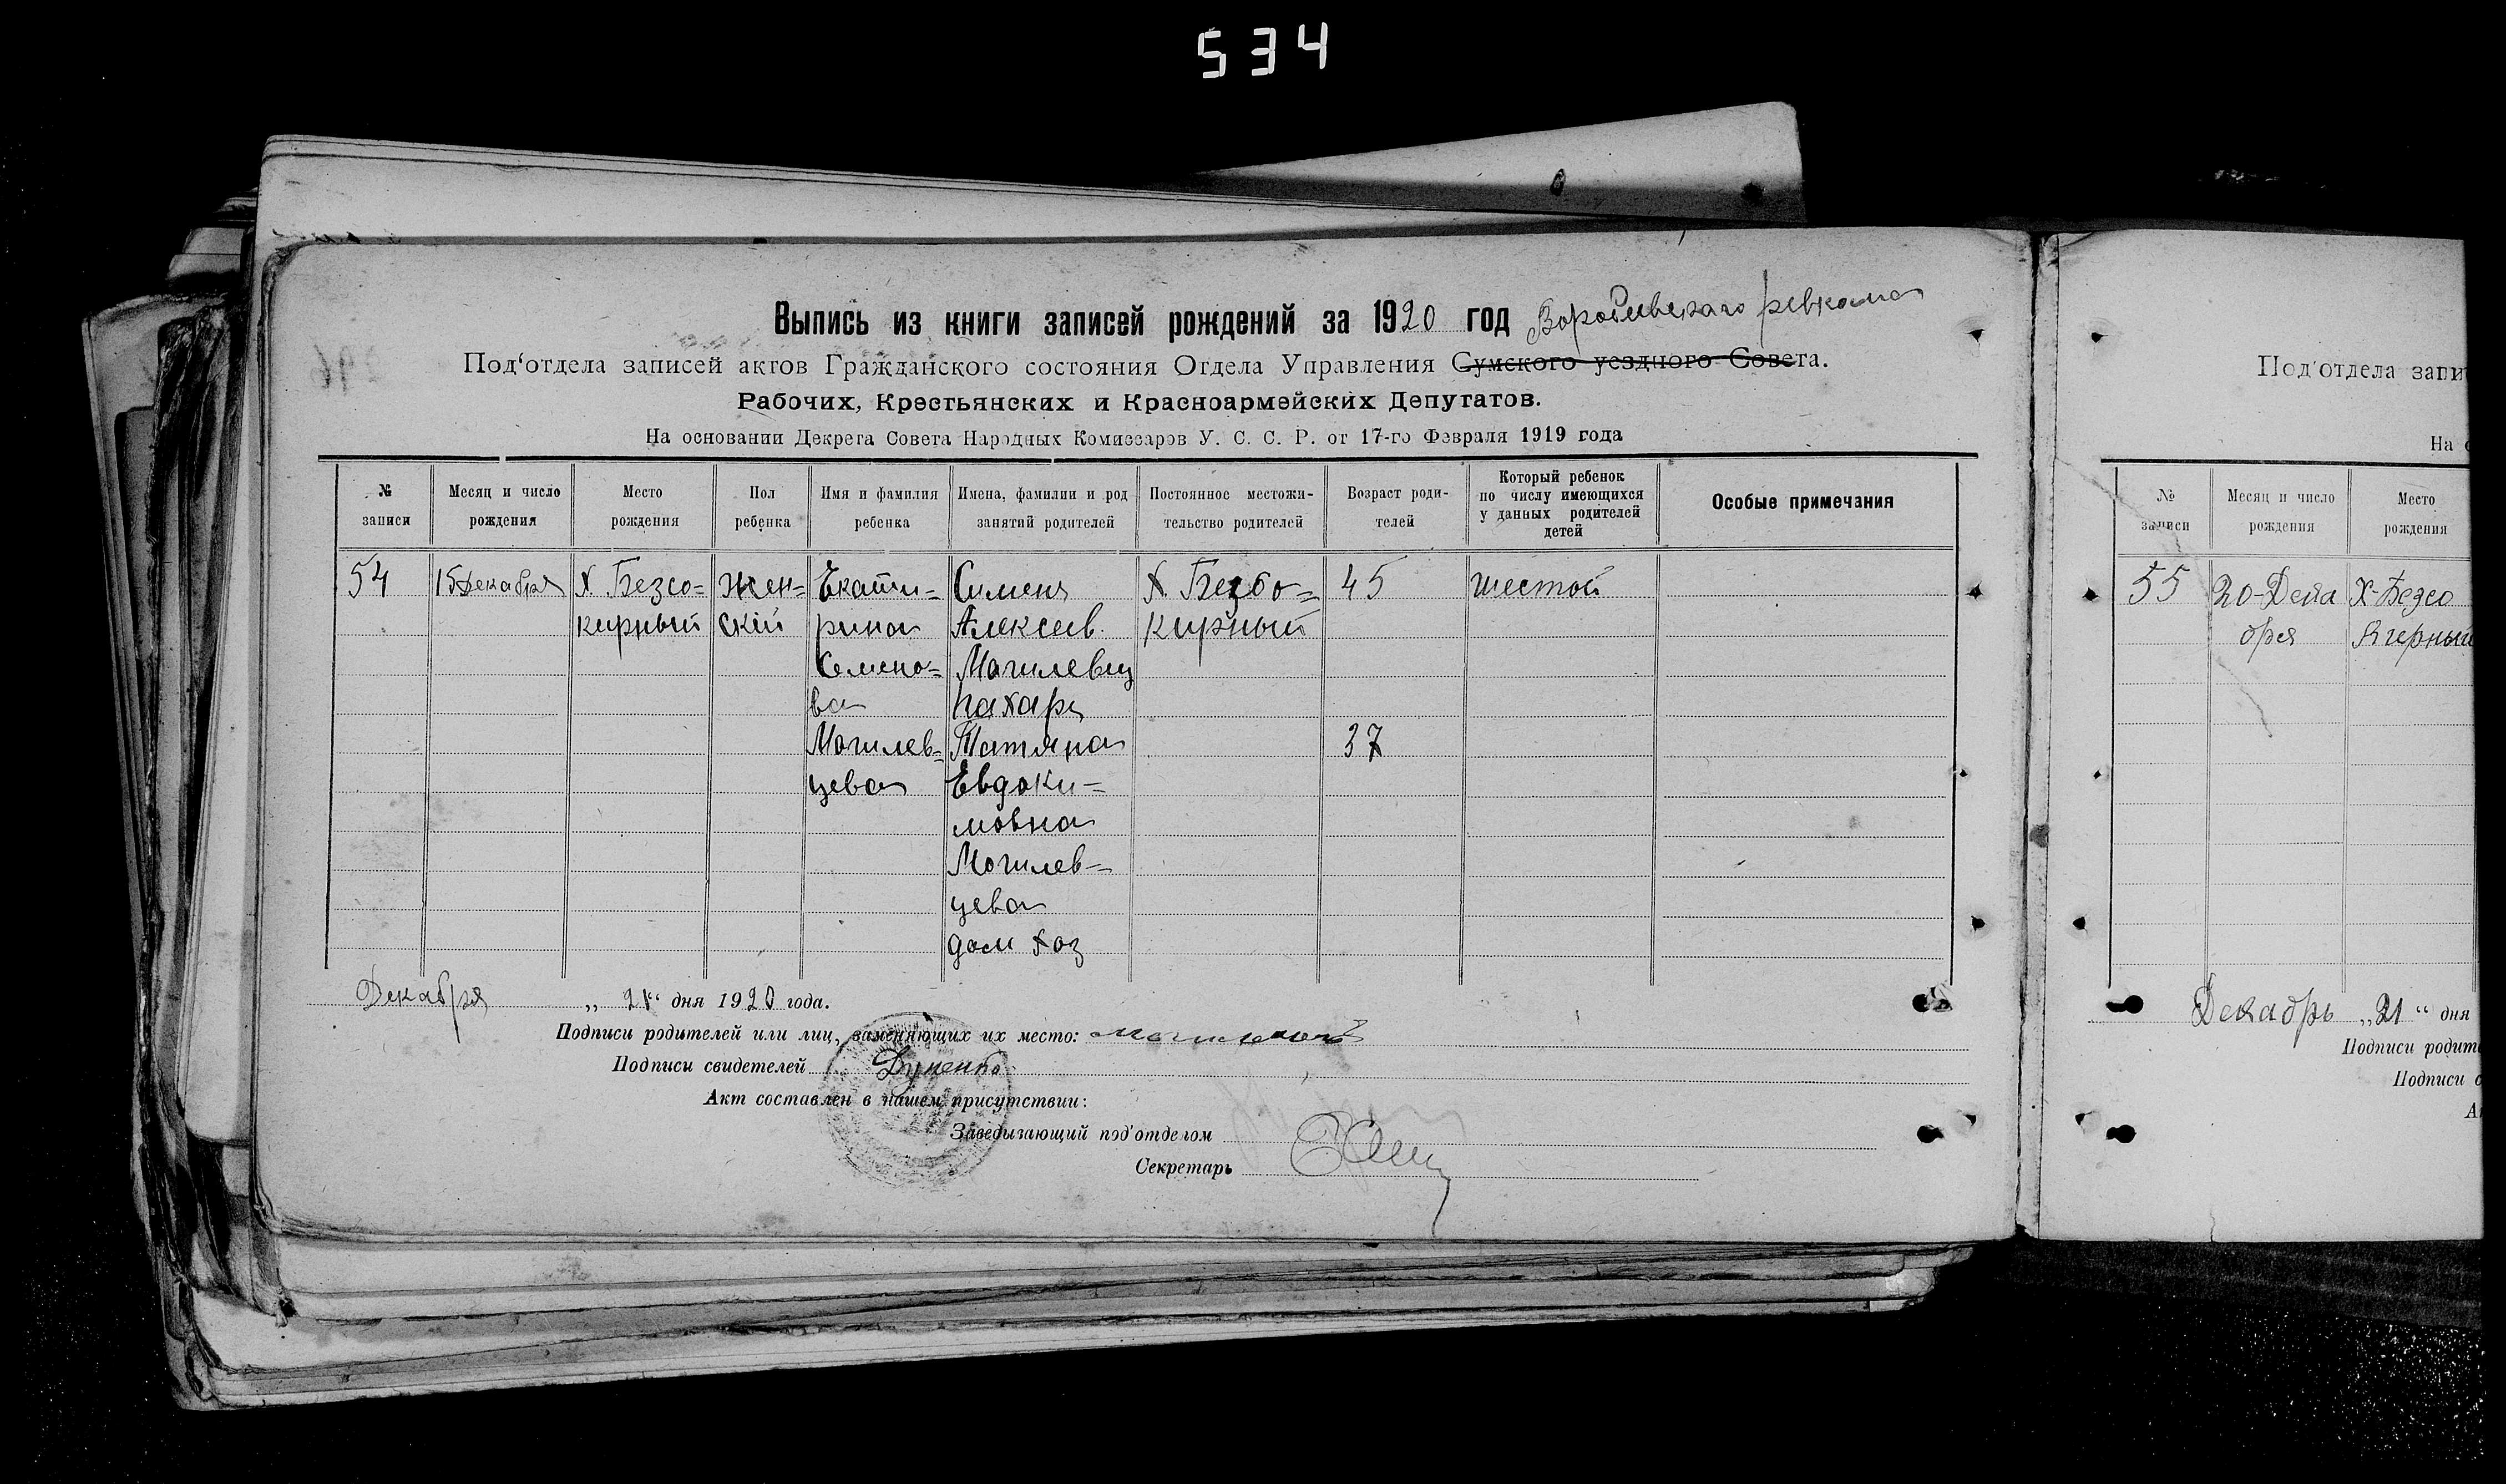 534
Выпись из книги записей рождений за 1920 год ревкома
Под‘отдела записей актов Гражданского состояния Отдела Управления Сумского уездного Совета.
Рабочих, Крестьянских и Красноармейских Депутатов.
На основании Декрета Совета Народных Комиссаров У. С. С. Р. от 17-го Февраля 1919 года
№ записи
Месяц и число рождения
Место рождения
Пол ребенка
Имя и фамилия ребенка
Имена, фамилии и род занятий родителей
Постоянное местожи-
тельство родителей
Возраст роди-
телей
Который ребенок
по числу имеющихся
у данных родителей
детей
Особые примечания
54 15 Декабря Х. Безсо= Жен= Екати= Симень Х. Безсо= 45 шестой
кирный скій рина Алексеев. кирный
Семено= Могилевец
ва пахарь
Могилев= Татяна 37
цева Евдоки=
мовна
Могилев=
цева
дом хоз
Декабря „ 21“ дня 1920 года.
Подписи родителей или лиц, заменяющих их место:
Подписи свидетелей
Акт составлен в нашем присутствии:
Заведывающий под'отделом
Секретарь
Под'отдела запи
На
№ записи
Месяц и число рождения
Место рождения
55 20-Дека Х-Безсо
бря
Декабрь „21“ дня
Подписи родит
Подписи с